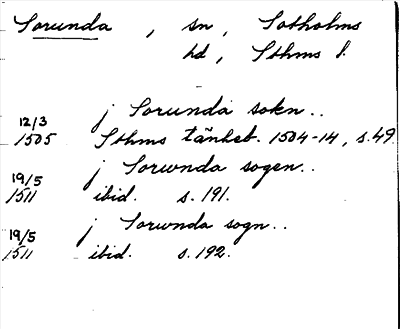 Sorunda, sn, Sotholms
hd, Sthms l.
j Sorunda sokn..
12/3
1505 Sthms tänkeb. 1504-14, s.49
j Sorwnda sogen..
19/5
1511 ibid. s.191.
j Sorwnda sogn..
19/5
1511 ibid. s.192.